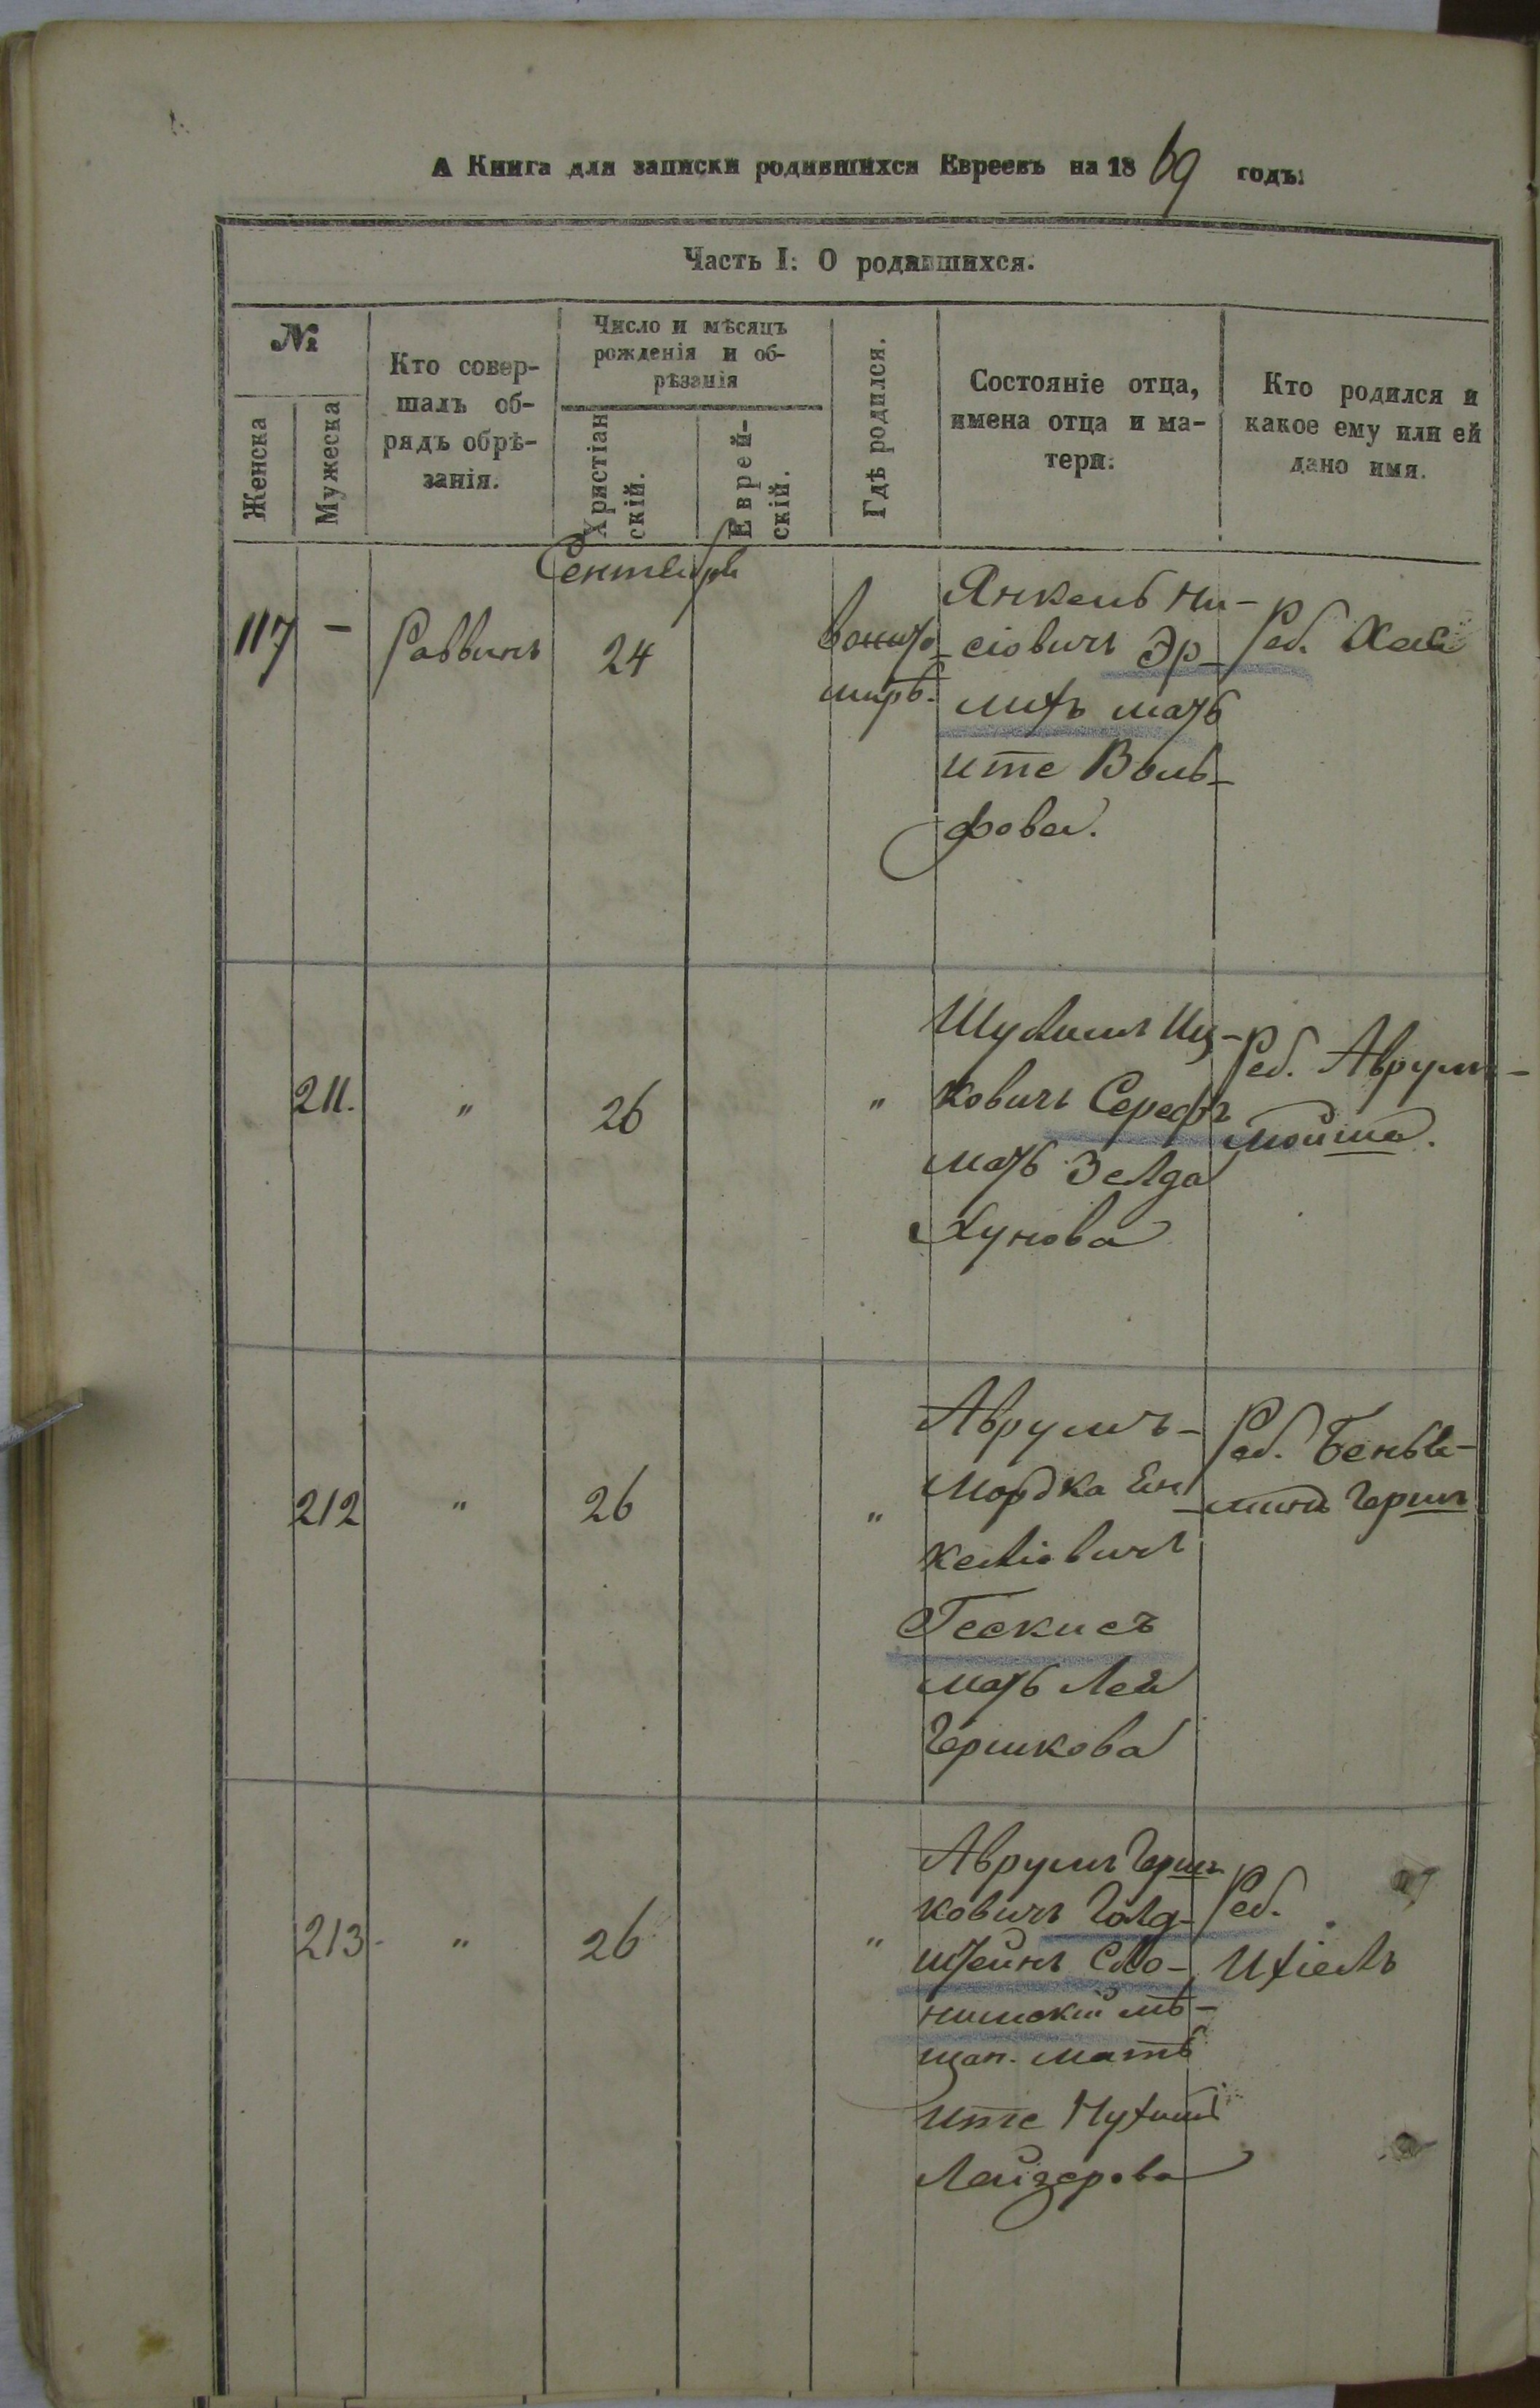 А Книга для записки родившихся Евреевъ на 1869 годъ.
Часть I: О родившихся.
№
Женска
Мужеска
Кто совер-
шалъ об-
рядъ обрѣ-
занія.
Число и мѣсяцъ
рожденія и об-
рѣзанія
Христіан
скій.
Еврей-
скій.
Гдѣ родился.
Состояніе отца,
имена отца и ма-
тери.
Кто родился и
какое ему или ей
дано имя.
Сентября
117 - Раввинъ 24
Янкель Ни-
сіовичъ Эр-
лихъ мать
Ите Воль-
фова.
Реб. Хая
211. " 26 "
Шулимъ Иц-
ковичъ Серефъ
мать Зелда
Хунова
Реб. Аврумъ-
Мойша.
212 " 26 "
Аврумъ-
Мордка Ян
келіовичъ
Гескисъ
мать Лея
Гершкова
Реб. Беньа-
минъ Гершъ
213 - " 26 "
Аврумъ Герш
ковичъ Голд-
штейнъ Сло-
нимскій мѣ-
щан. мать
Ите
Лейзерова
Реб.
Ихіелъ